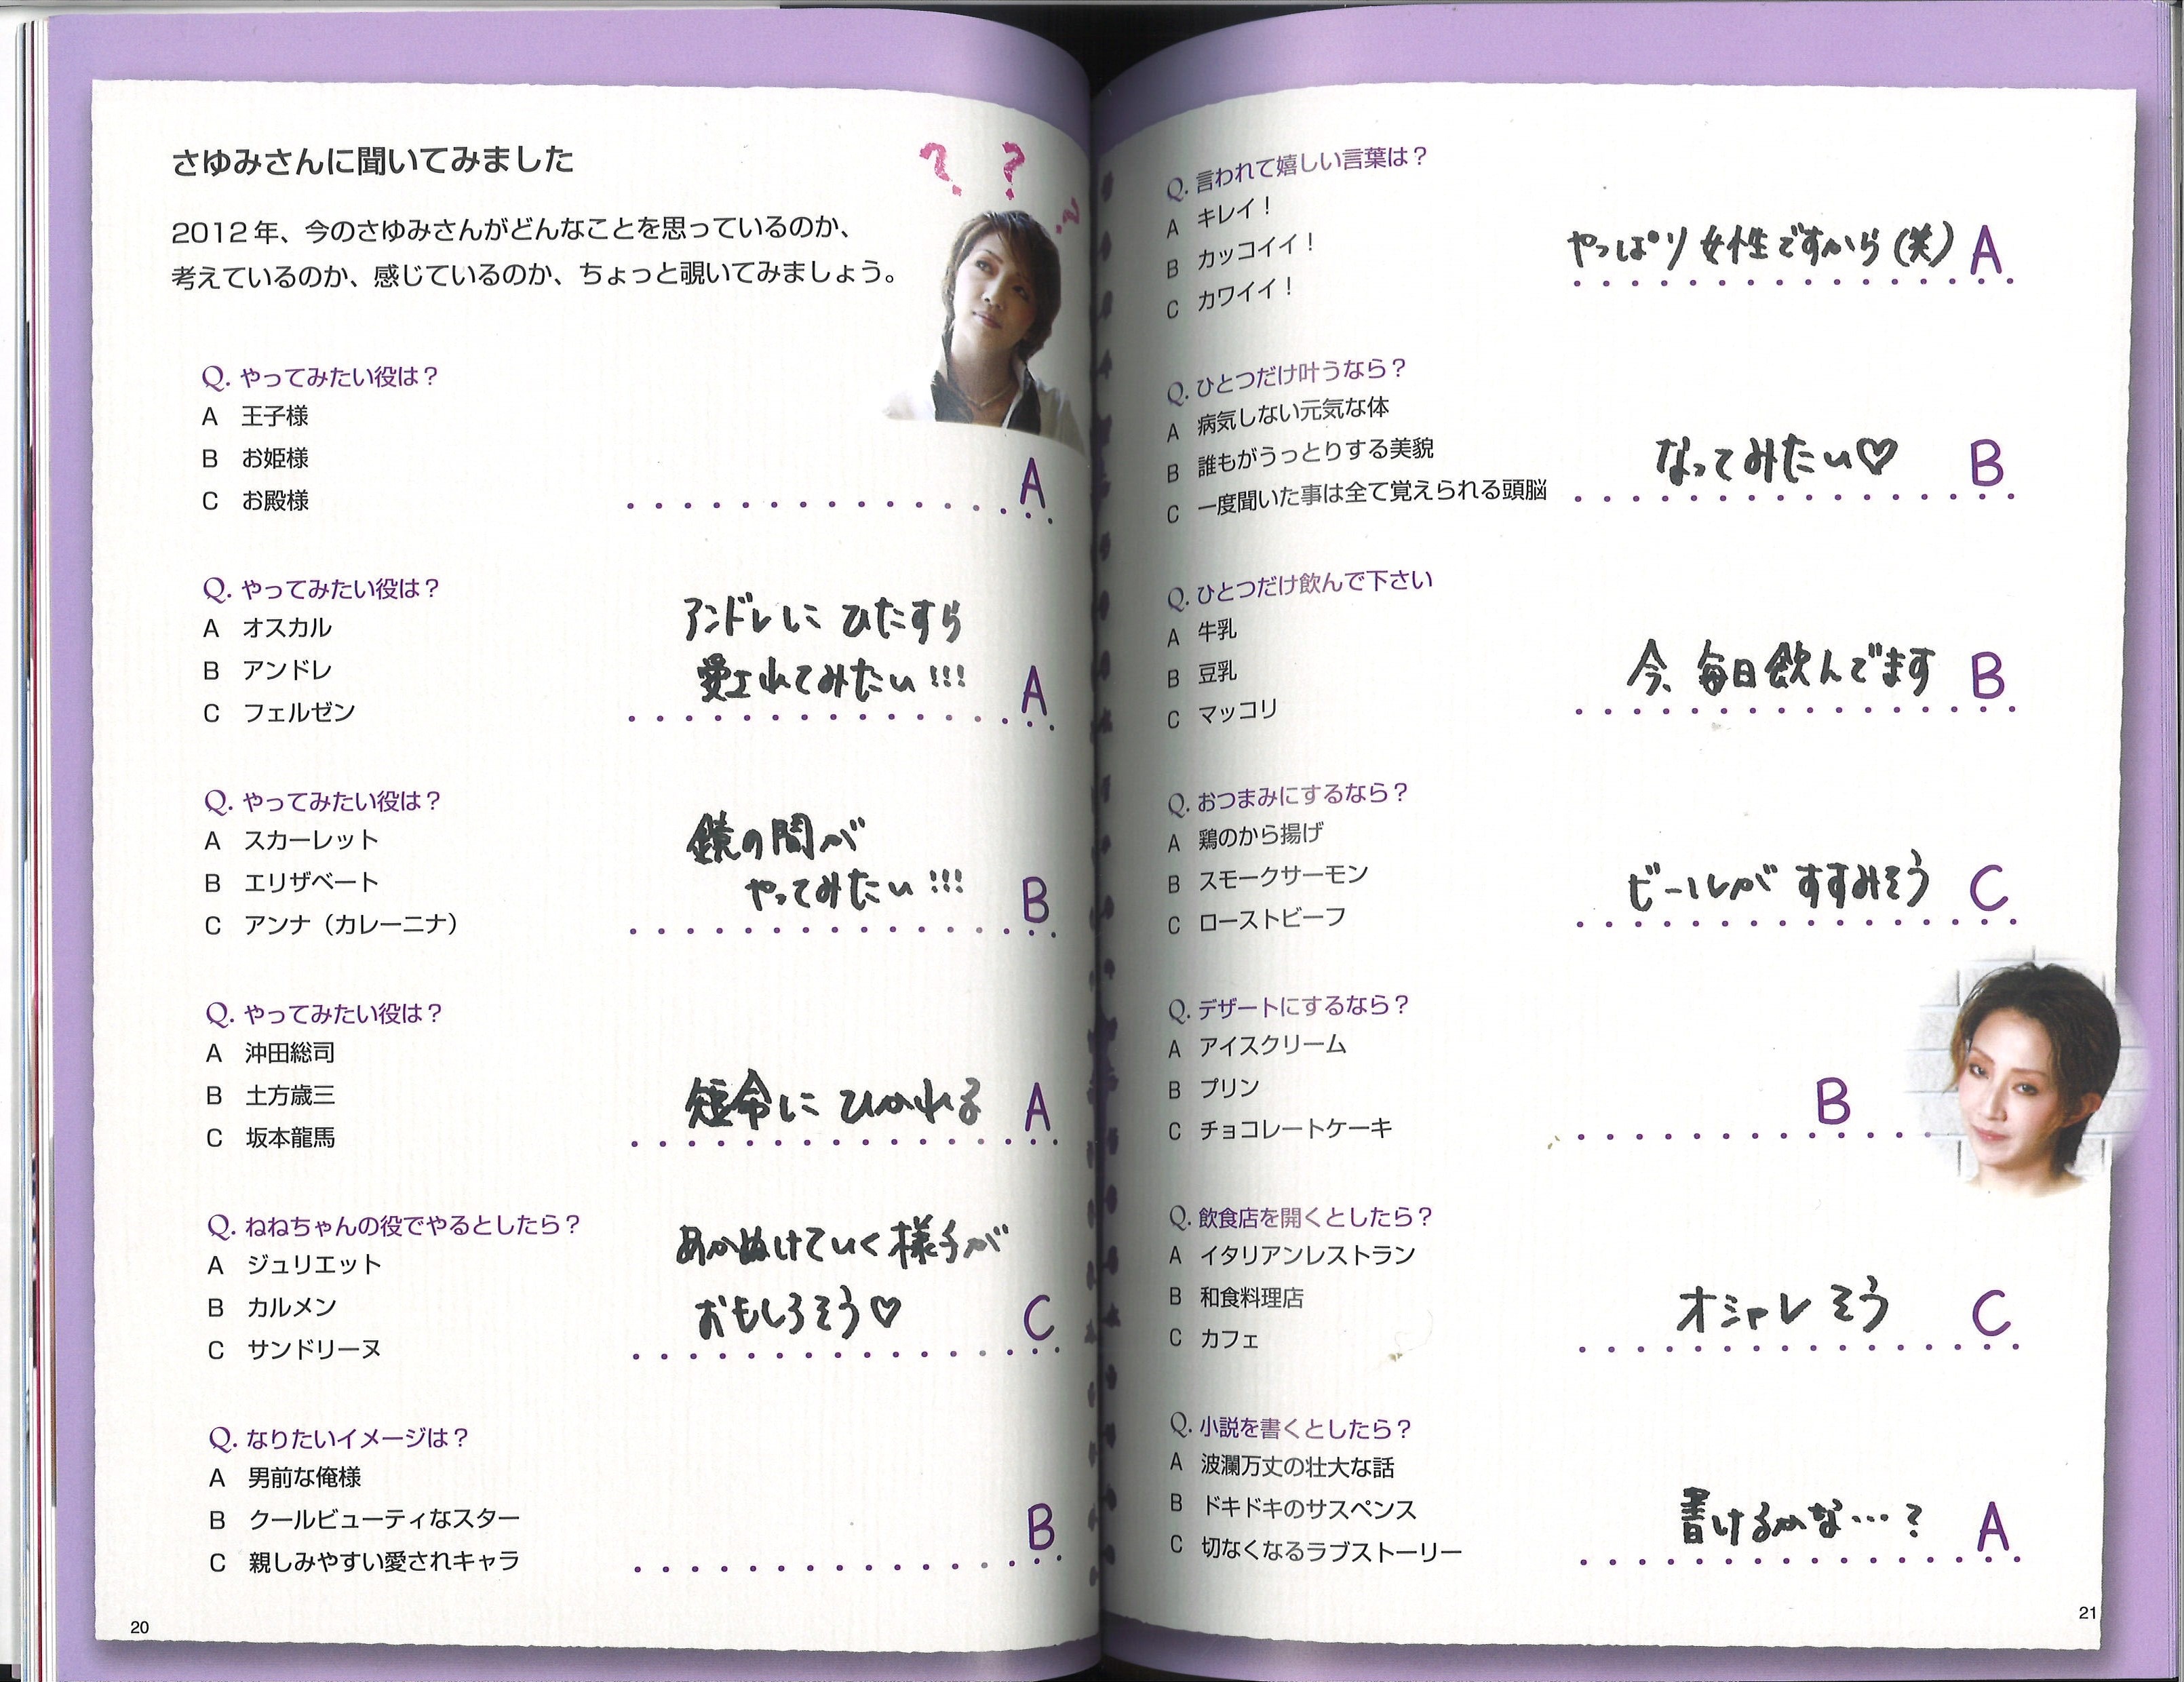 さゆみさんに聞いてみました
2012年、今のさゆみさんがどんなことを思っているのか、
考えているのか、感じているのか、ちょっと覗いてみましょう。
? ? ?
Q. やってみたい役は？
A 王子様
B お姫様
C お殿様
A
Q. やってみたい役は？
A オスカル
B アンドレ
C フェルゼン
アンドレに ひたすら
愛されてみたい!!!
A
Q. やってみたい役は？
A スカーレット
B エリザベート
C アンナ（カレーニナ）
鏡の間が
やってみたい!!!
B
Q. やってみたい役は？
A 沖田総司
B 土方歳三
C 坂本龍馬
短命に ひかれる A
Q. ねねちゃんの役でやるとしたら？
A ジュリエット
B カルメン
C サンドリーヌ
あかぬけていく様子が
おもしろそう♡
C
Q. なりたいイメージは？
A 男前な俺様
B クールビューティなスター
C 親しみやすい愛されキャラ
B
20
Q. 言われて嬉しい言葉は？
A キレイ！
B カッコイイ！
C カワイイ！
やっぱり女性ですから(笑) A
Q. ひとつだけ叶うなら？
A 病気しない元気な体
B 誰もがうっとりする美貌
C 一度聞いた事は全て覚えられる頭脳
なってみたい♡ B
Q. ひとつだけ飲んで下さい
A 牛乳
B 豆乳
C マッコリ
今、毎日飲んでます B
Q. おつまみにするなら？
A 鶏のから揚げ
B スモークサーモン
C ローストビーフ
ビールが すすみそう C
Q. デザートにするなら？
A アイスクリーム
B プリン
C チョコレートケーキ
B
Q. 飲食店を開くとしたら？
A イタリアンレストラン
B 和食料理店
C カフェ
オシャレそう C
Q. 小説を書くとしたら？
A 波瀾万丈の壮大な話
B ドキドキのサスペンス
C 切なくなるラブストーリー
書けるかな…？ A
21